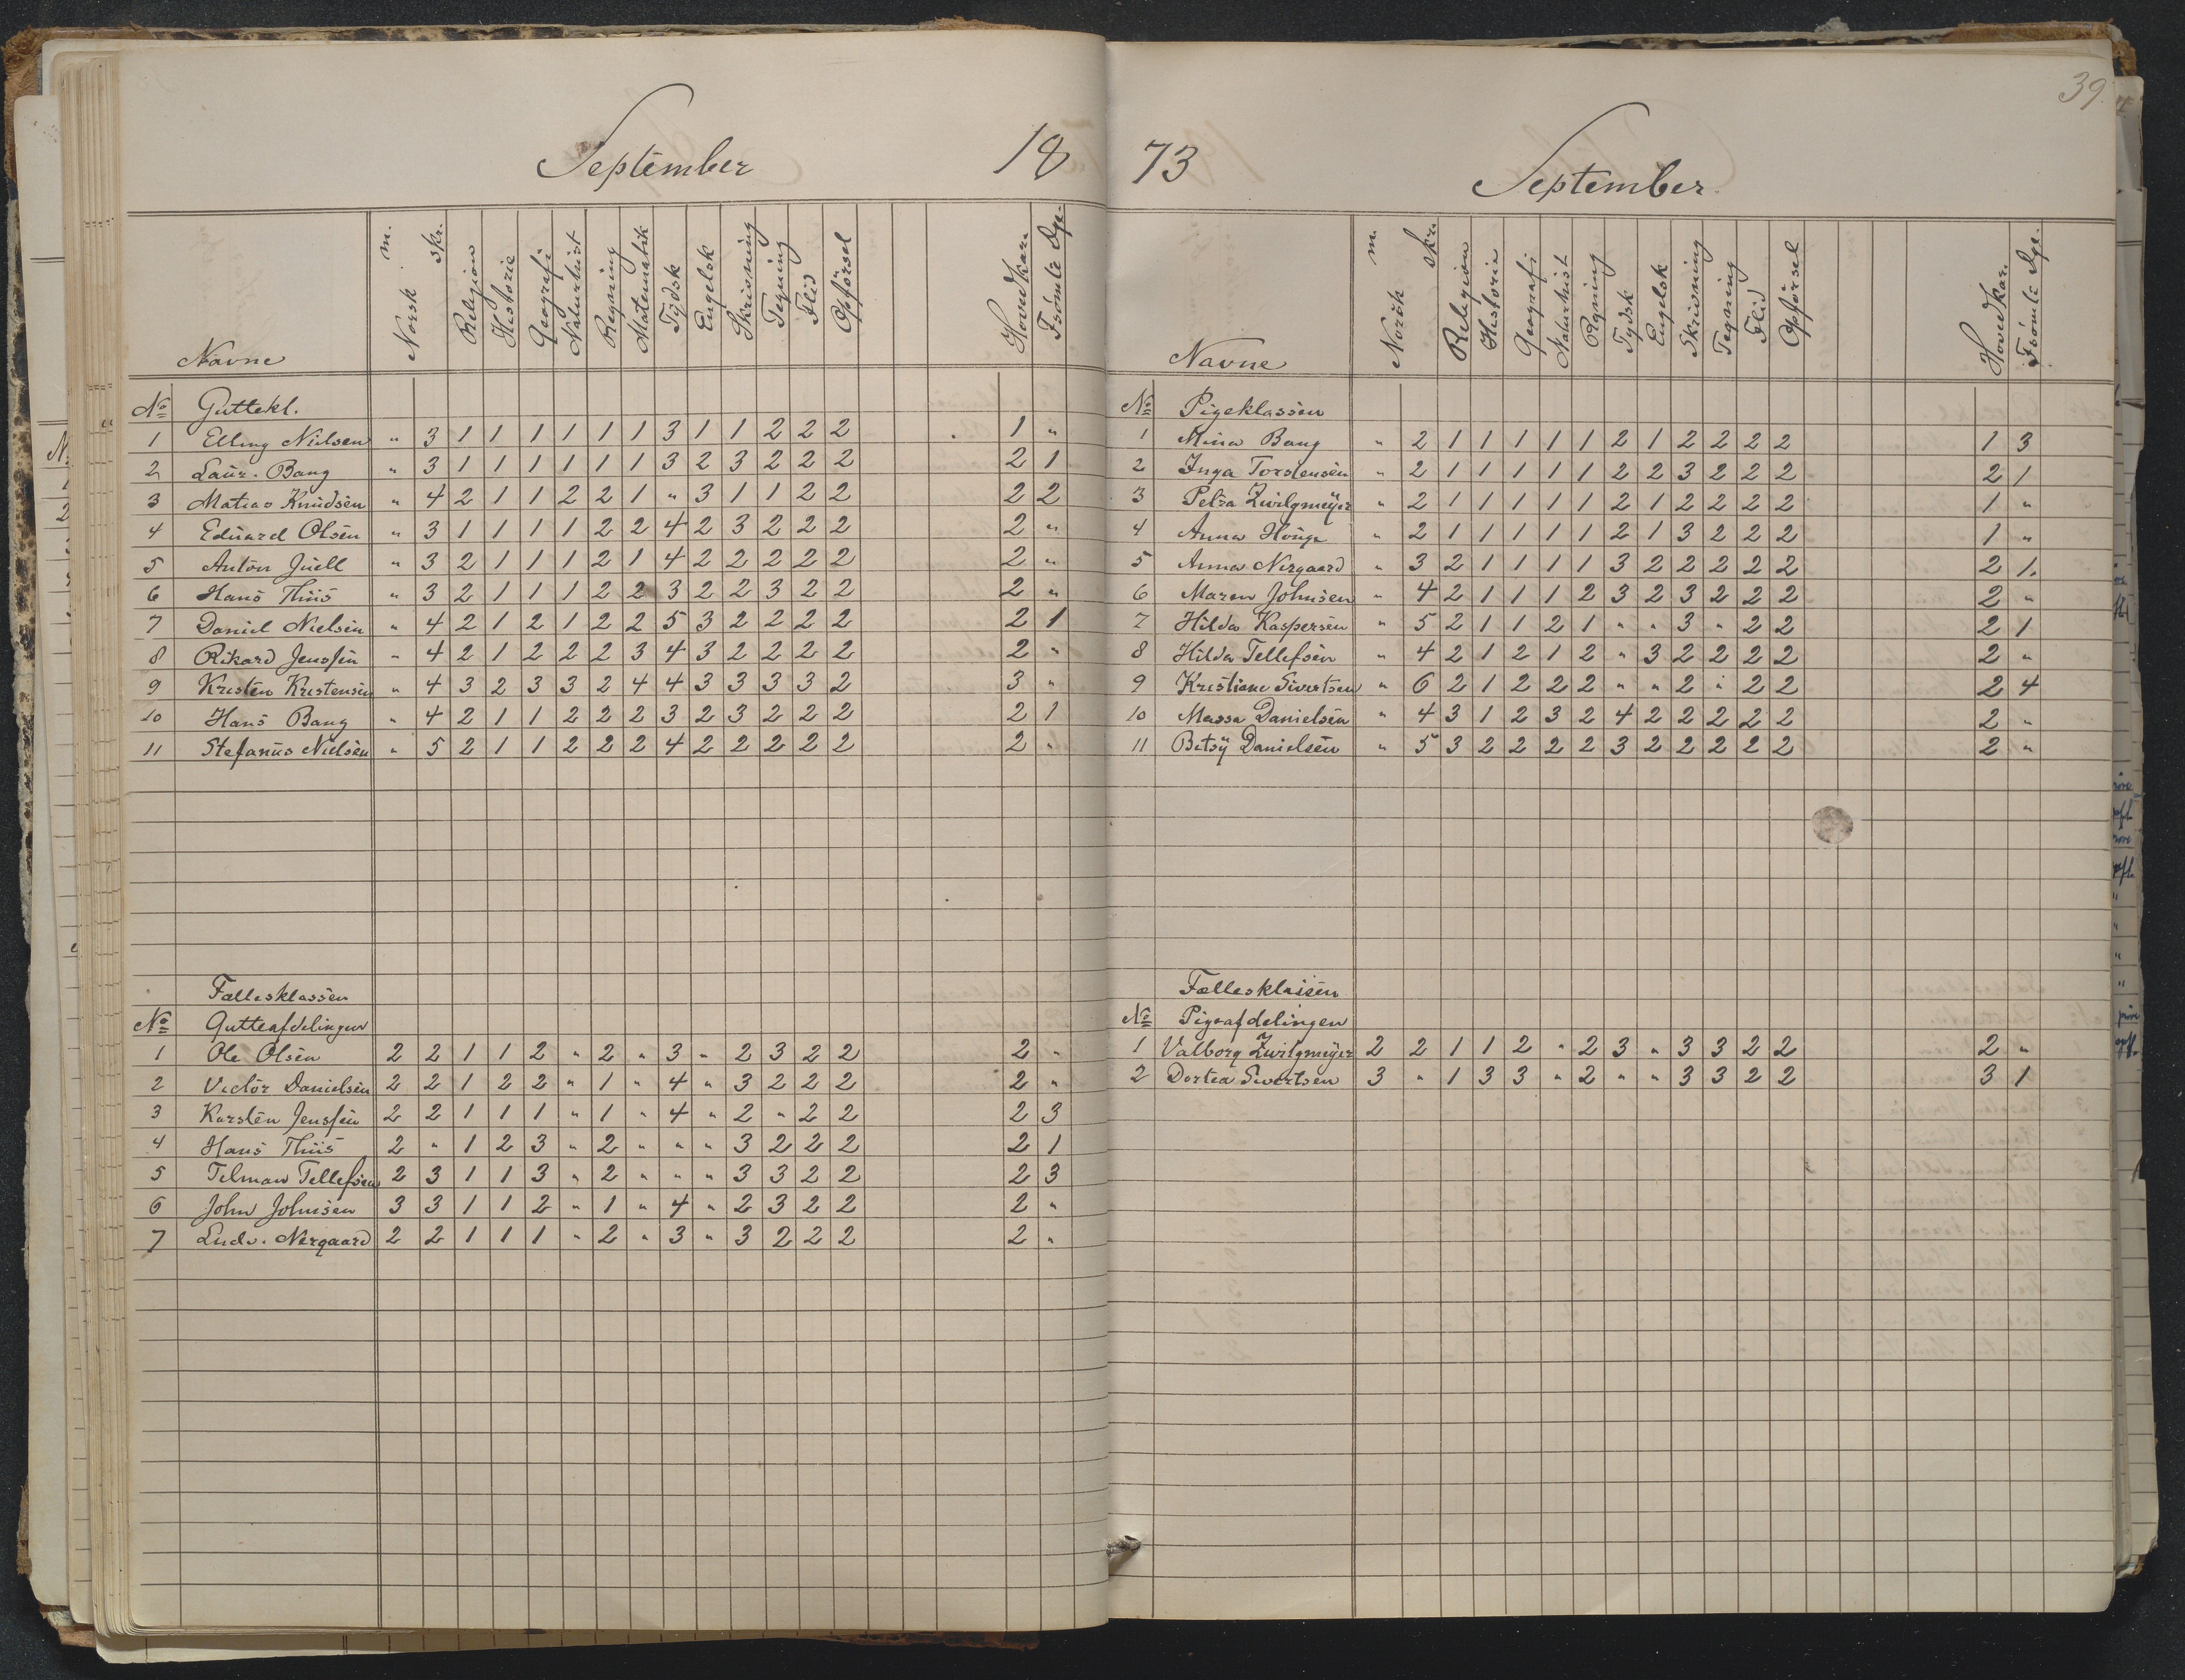 39.
September 18
Navne Norsk m. skr. Religion Historie Geografi Naturhist Regning Matematik Tydsk Engelsk Skrivning Tegning Flid Opførsel Hovedkar. Fsömte Dge.
No Guttekl.
1 Elling Nielsen " 3 1 1 1 1 1 1 3 1 1 2 2 2 1 "
2 Laur. Bang " 3 1 1 1 1 1 1 3 2 3 2 2 2 2 1
3 Matias Knudsen " 4 2 1 1 2 2 1 " 3 1 1 2 2 2 2
4 Eduard Olsen " 3 1 1 1 1 2 2 4 2 3 2 2 2 2 "
5 Anton Juell " 3 2 1 1 1 2 1 4 2 2 2 2 2 2 "
6 Hans Thiis " 3 2 1 1 1 2 2 3 2 2 3 2 2 2 "
7 Daniel Nielsen " 4 2 1 2 1 2 2 5 3 2 2 2 2 2 1
8 Rikard Jenssen " 4 2 1 2 2 2 3 4 3 2 2 2 2 2 "
9 Kristen Kristensen " 4 3 2 3 3 2 4 4 3 3 3 3 2 3 "
10 Hans Bang " 4 2 1 1 2 2 2 3 2 3 2 2 2 2 1
11 Stefanus Nielsen " 5 2 1 1 2 2 2 4 2 2 2 2 2 2 "
Fællesklassen
No Gutteafdelingen
1 Ole Olsen 2 2 1 1 2 " 2 " 3 " 2 3 2 2 2 "
2 Victor Danielsen 2 2 1 2 2 " 1 " 4 " 3 2 2 2 2 "
3 Karsten Jenssen 2 2 1 1 1 " 1 " 4 " 2 " 2 2 2 3
4 Hans Thiis 2 " 1 2 3 " 2 " " " 3 2 2 2 2 1
5 Telman Tellefsen 2 3 1 1 3 " 2 " " " 3 3 2 2 2 3
6 John Johnsen 3 3 1 1 2 " 1 " 4 " 2 3 2 2 2 "
7 Ludv. Nergaard 2 2 1 1 1 " 2 " 3 " 3 2 2 2 2 "
73 September.
Navne Norsk m. skr. Religion Historie Geografi Naturhist Regning Tydsk Engelsk Skrivning Tegning Flid Opførsel Hovedkar. Fsömte Dge.
No Pigeklassen
1 Mina Bang " 2 1 1 1 1 1 2 1 2 2 2 2 1 3
2 Inga Torstensen " 2 1 1 1 1 1 2 2 3 2 2 2 2 1
3 Petra Zwilgmeÿer " 2 1 1 1 1 1 2 1 2 2 2 2 1 "
4 Anna " 2 1 1 1 1 1 2 1 3 2 2 2 1 "
5 Anna Nergaard " 3 2 1 1 1 1 3 2 2 2 2 2 2 1.
6 Maren Johnsen " 4 2 1 1 1 2 3 2 3 2 2 2 2 "
7 Hilda Kaspersen " 5 2 1 1 2 1 " " 3 " 2 2 2 1
8 Hilda Tellefsen " 4 2 1 2 1 2 " 3 2 2 2 2 2 "
9 Kristiane Sivertsen " 6 2 1 2 2 2 " " 2 " 2 2 2 4
10 Massa Danielsen " 4 3 1 2 3 2 4 2 2 2 2 2 2 "
11 Betsÿ Danielsen " 5 3 2 2 2 2 3 2 2 2 2 2 2 "
Fællesklassen
No Pigeafdelingen
1 Valborg Zwilgmeÿer 2 2 1 1 2 " 2 3 " 3 3 2 2 2 "
2 Dortea Sivertsen 3 " 1 3 3 " 2 " " 3 3 2 2 3 1